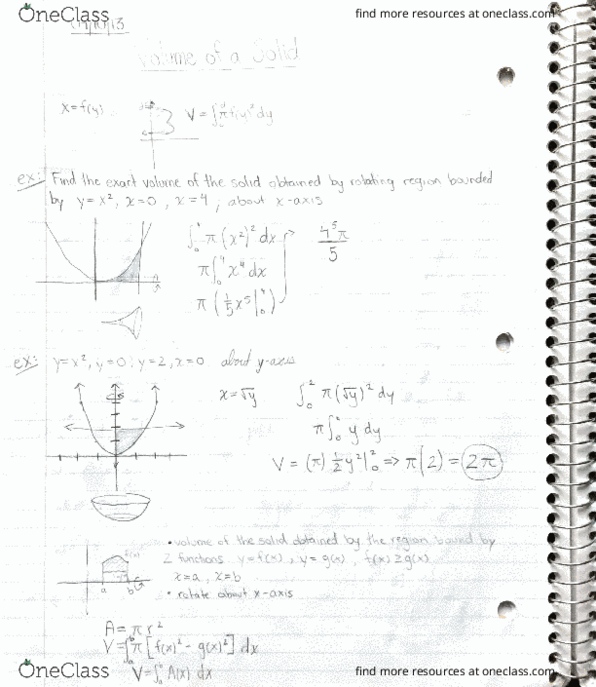 OneClass
find more resources at oneclass.com
Volume of a Solid
x=f(y) V = ∫ π f(y)² dy
ex: Find the exact volume of the solid obtained by rotating region bounded
by y=x², x=0, x=4, about x-axis
∫₀⁴ π(x²)² dx 4⁵π/5
π∫₀⁴ x⁴ dx
π(1/5 x⁵|₀⁴)
ex: y=x², y=0, y=2, x=0 about y-axis
x=√y ∫₀² π(√y)² dy
π∫₀² y dy
V = (π) 1/2 y²|₀² => π(2) = 2π
• volume of the solid obtained by the region bound by
2 functions y=f(x), y=g(x), f(x)≥g(x)
x=a, x=b
• rotate about x-axis
f(x)
a b
A = πr²
V=∫π[f(x)² - g(x)²] dx
V=∫ A(x) dx
OneClass
find more resources at oneclass.com